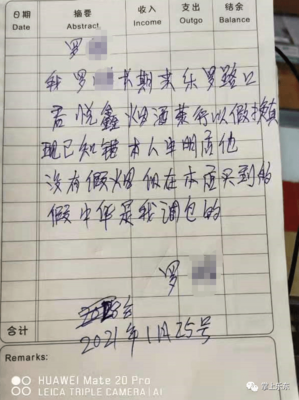 日期 摘要 收入 支出 结余
Date Abstract Income Outgo Balance
罗
我罗 长期来乐罗路口
君悦鑫烟酒茶行以假换真
现已知错本人申明店他
没有假烟 但在本店买到的
假中华是我调包的
罗
2021年1月25号
合计
Remarks:
HUAWEI Mate 20 Pro
LEICA TRIPLE CAMERA | AI
掌上乐东